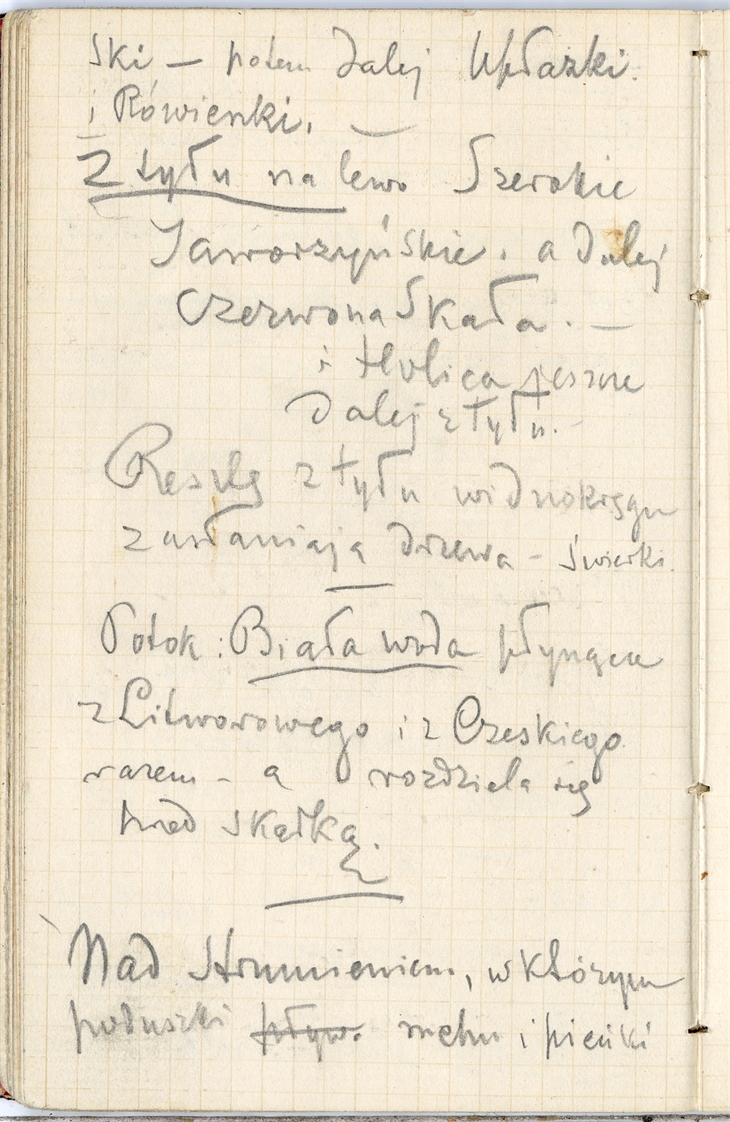 ski — potem dalej Upłazki.
i Rówienki. —
Z tyłu na lewo Szerokie
Jaworzyńskie, a dalej
Czerwona Skała. —
i Holica jeszcze
dalej z tyłu. -
Resztę z tyłu widnokręgu
zasłaniają drzewa - świerki.
Potok: Biała woda płynąca
z Litworowego i z Czeskiego
razem - a rozdziela się
przed skałką.
Nad strumieniem, w którym
poduszki pływ. mchu i pieńki